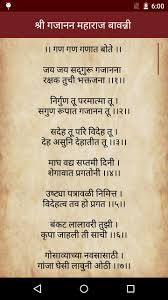 6:00
श्री गजानन महाराज बावन्नी
।। गण गण गणात बोते ।।
जय जय सद्गुरू गजानना
रक्षक तुची भक्तजना ।।१।।
निर्गुण तू परमात्मा तू ।
सगुण रूपात गजानन तू ।।२।।
सदेह तू परि विदेह तू ।
देह असुनि देहातीत तू ।।३।।
माघ वद्य सप्तमी दिनी
शेगावात प्रगतोनी ।।४।।
उष्ट्या पत्रावळी निमित्त ।
विदेहत्व तव हो प्रगत ।।५।।
बंकट लालावरी तुझी ।
कृपा जाहली ती साची ।।६।।
गोसाव्याच्या नवसासाठी ।
गांजा घेसी लावुनी ओठी ।।७।।